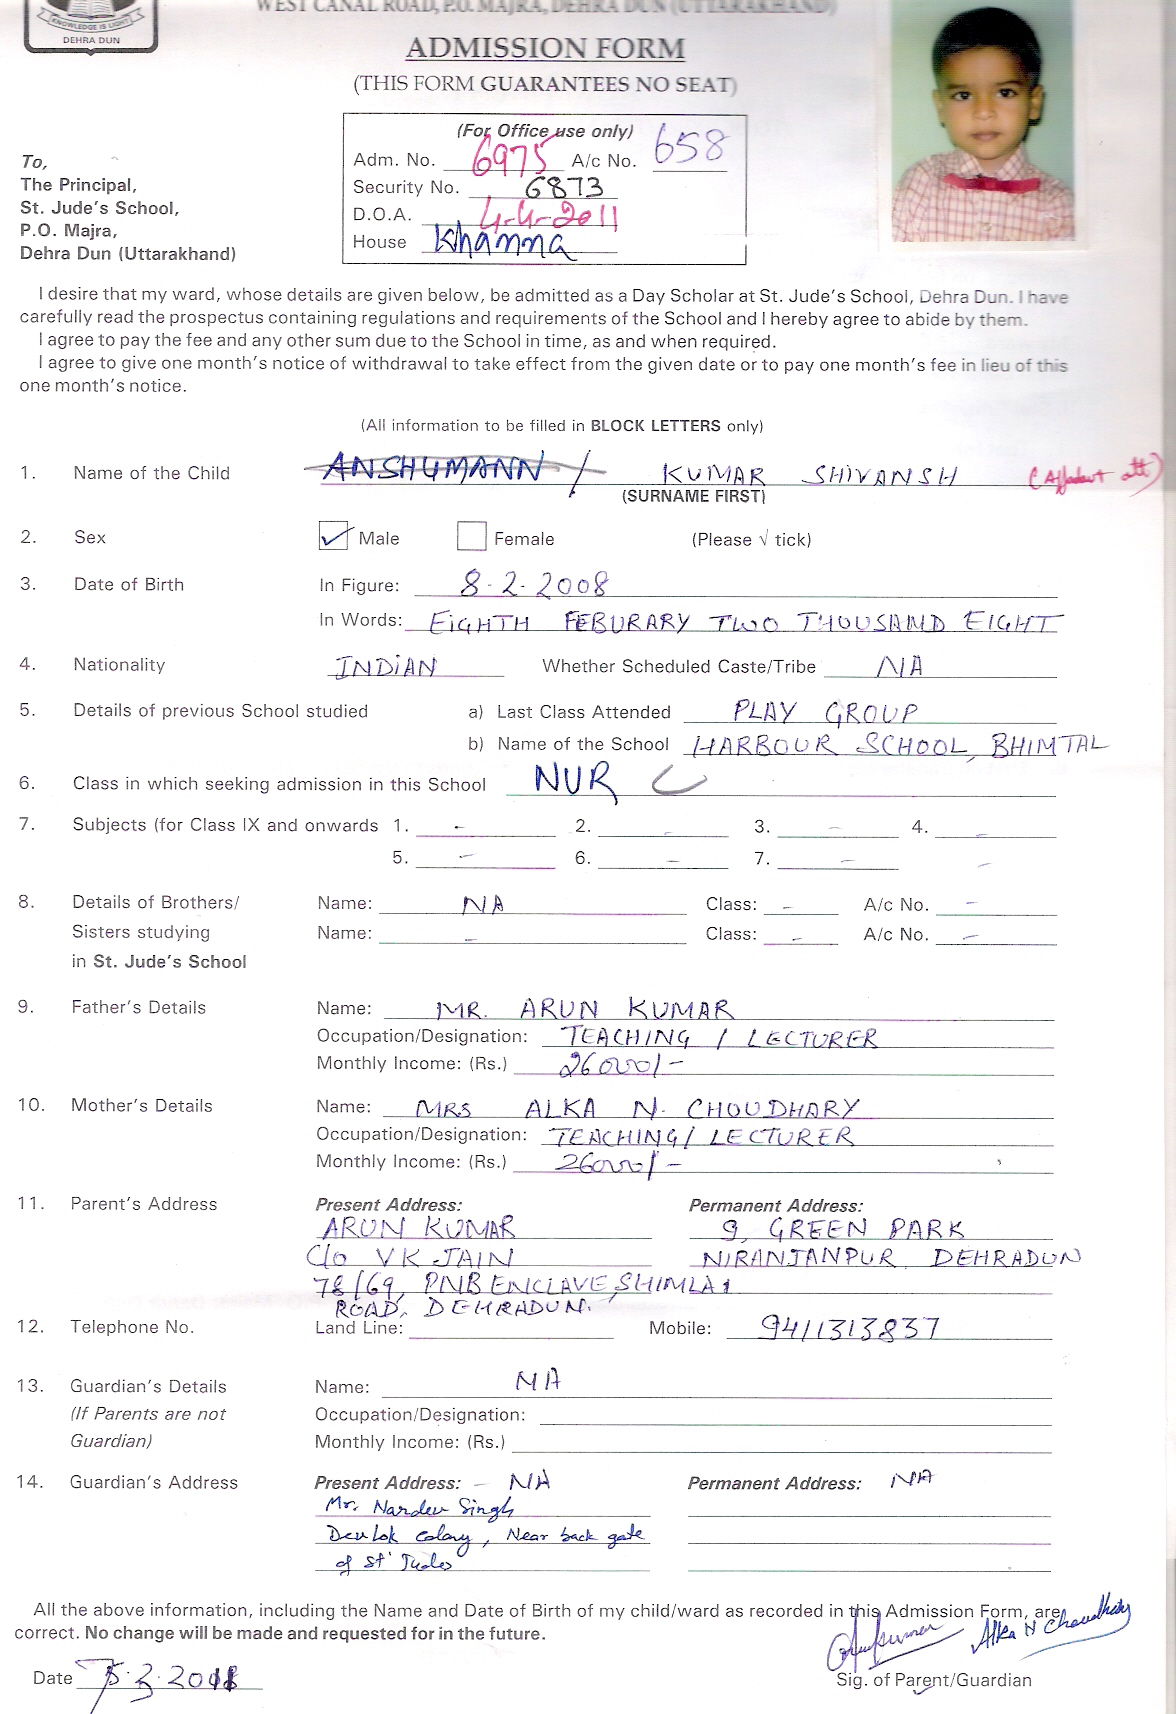 WEST CANAL ROAD, P.O. MAJRA, DEHRA DUN (UTTARAKHAND)
KNOWLEDGE IS LIGHT
DEHRA DUN
ADMISSION FORM
(THIS FORM GUARANTEES NO SEAT)
(For Office use only)
Adm. No. 6975 A/c No. 658
Security No. 6873
D.O.A. 4-4-2011
House Khanna
To,
The Principal,
St. Jude's School,
P.O. Majra,
Dehra Dun (Uttarakhand)
I desire that my ward, whose details are given below, be admitted as a Day Scholar at St. Jude's School, Dehra Dun. I have
carefully read the prospectus containing regulations and requirements of the School and I hereby agree to abide by them.
I agree to pay the fee and any other sum due to the School in time, as and when required.
I agree to give one month's notice of withdrawal to take effect from the given date or to pay one month's fee in lieu of this
one month's notice.
(All information to be filled in BLOCK LETTERS only)
1. Name of the Child ANSHUMANN / KUMAR SHIVANSH (Affadavt att)
(SURNAME FIRST)
2. Sex Male Female (Please √ tick)
3. Date of Birth In Figure: 8-2-2008
In Words: EIGHTH FEBURARY TWO THOUSAND EIGHT
4. Nationality INDIAN Whether Scheduled Caste/Tribe NA
5. Details of previous School studied a) Last Class Attended PLAY GROUP
b) Name of the School HARBOUR SCHOOL, BHIMTAL
6. Class in which seeking admission in this School NUR C
7. Subjects (for Class IX and onwards 1. - 2. - 3. - 4. -
5. - 6. - 7. - -
8. Details of Brothers/ Name: NA Class: - A/c No. -
Sisters studying Name: - Class: - A/c No. -
in St. Jude's School
9. Father's Details Name: MR. ARUN KUMAR
Occupation/Designation: TEACHING / LECTURER
Monthly Income: (Rs.) 26000/-
10. Mother's Details Name: MRS ALKA N. CHOUDHARY
Occupation/Designation: TEACHING / LECTURER
Monthly Income: (Rs.) 26000/-
11. Parent's Address Present Address: Permanent Address:
ARUN KUMAR 9, GREEN PARK
C/o VK JAIN NIRANJANPUR DEHRADUN
78/69, PNB ENCLAVE, SHIMLA
ROAD, DEHRADUN.
12. Telephone No. Land Line: Mobile: 9411313837
13. Guardian's Details Name: NA
(If Parents are not Occupation/Designation:
Guardian) Monthly Income: (Rs.)
14. Guardian's Address Present Address: - NA Permanent Address: NA
Mr. Nardev Singh
Devlok Colony, Near back gate
of St' Judes
All the above information, including the Name and Date of Birth of my child/ward as recorded in this Admission Form, are
correct. No change will be made and requested for in the future.
Arunkumar Alka N Choudhary
Date -3-2011 Sig. of Parent/Guardian